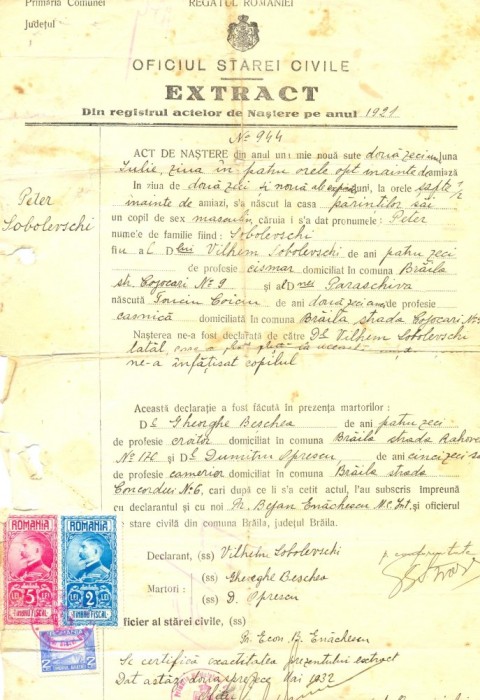 Primăria Comunei
REGATUL ROMÂNIEI
Județul
OFICIUL STAREI CIVILE
EXTRACT
Din registrul actelor de Naștere pe anul 1921
No 944
ACT DE NAȘTERE din anul un mie nouă sute două zeci luna
Iulie, ziua în patru orele opt înainte de amiază
În ziua de două zeci și nouă ale, la orele șapte 1/2
înainte de amiazi, s'a născut la casa părinților săi
un copil de sex masculin căruia i s'a dat pronumele: Peter
nume'e de familie fiind: Sobolevschi
Peter
Sobolevschi
fiu al Dlui Vilhelm Sobolevschi de ani patru zeci
de profesie cismar domiciliat în comuna Brăila
str. Cojocari No 9 și al Dnei Paraschiva
născută Coiciu de ani două zeci de profesie
casnică domiciliată în comuna Brăila strada Cojocari No
Nașterea ne-a fost declarată de către Dl Vilhelm Sobolevschi
tatăl, care
ne-a înfățisat copilul
Această declarație a fost făcută în prezența martorilor:
Dl Gheorghe Beschea de ani patru zeci
de profesie croitor domiciliat în comuna Brăila strada Rahovei
No 170 și Dl Dumitru Oprescu, de ani cinci zeci
de profesie camerior domiciliat în comuna Brăila strada
Concordiei No 6, cari după ce li s'a cetit actul, l'au subscris împreună
cu declarantul și cu noi Bejan Enăchescu și oficierul
de stare civilă din comuna Brăila, județul Brăila.
Declarant, (ss) Vilhelm Sobolevschi
p. conformitate
Martori: (ss) Gheorghe Beschea
(ss) D. Oprescu
ficier al stărei civile, (ss)
Econ. B. Enăchescu
Se certifică exactitatea prezentului extract
Dat astăzi două Mai 1932
ROMANIA
5 LEI
TIMBRU FISCAL
ROMANIA
LEI 2 LEI
TIMBRU FISCAL
2 2